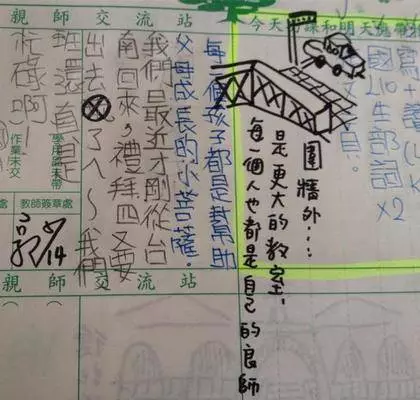 今天
課和明天
國L10生部詞×2
圍牆外…
是更大的教室，
每一個人也都是自己的良師
親師交流站
每一個孩子都是幫助
父母成長的小菩薩。
我們是最近才剛從台
南回來，禮拜四又要
出去⊗了ㄟ～我們
班還真是
忙碌啊！
學用品未帶
作業未交
教師簽章處
處
親師交流站